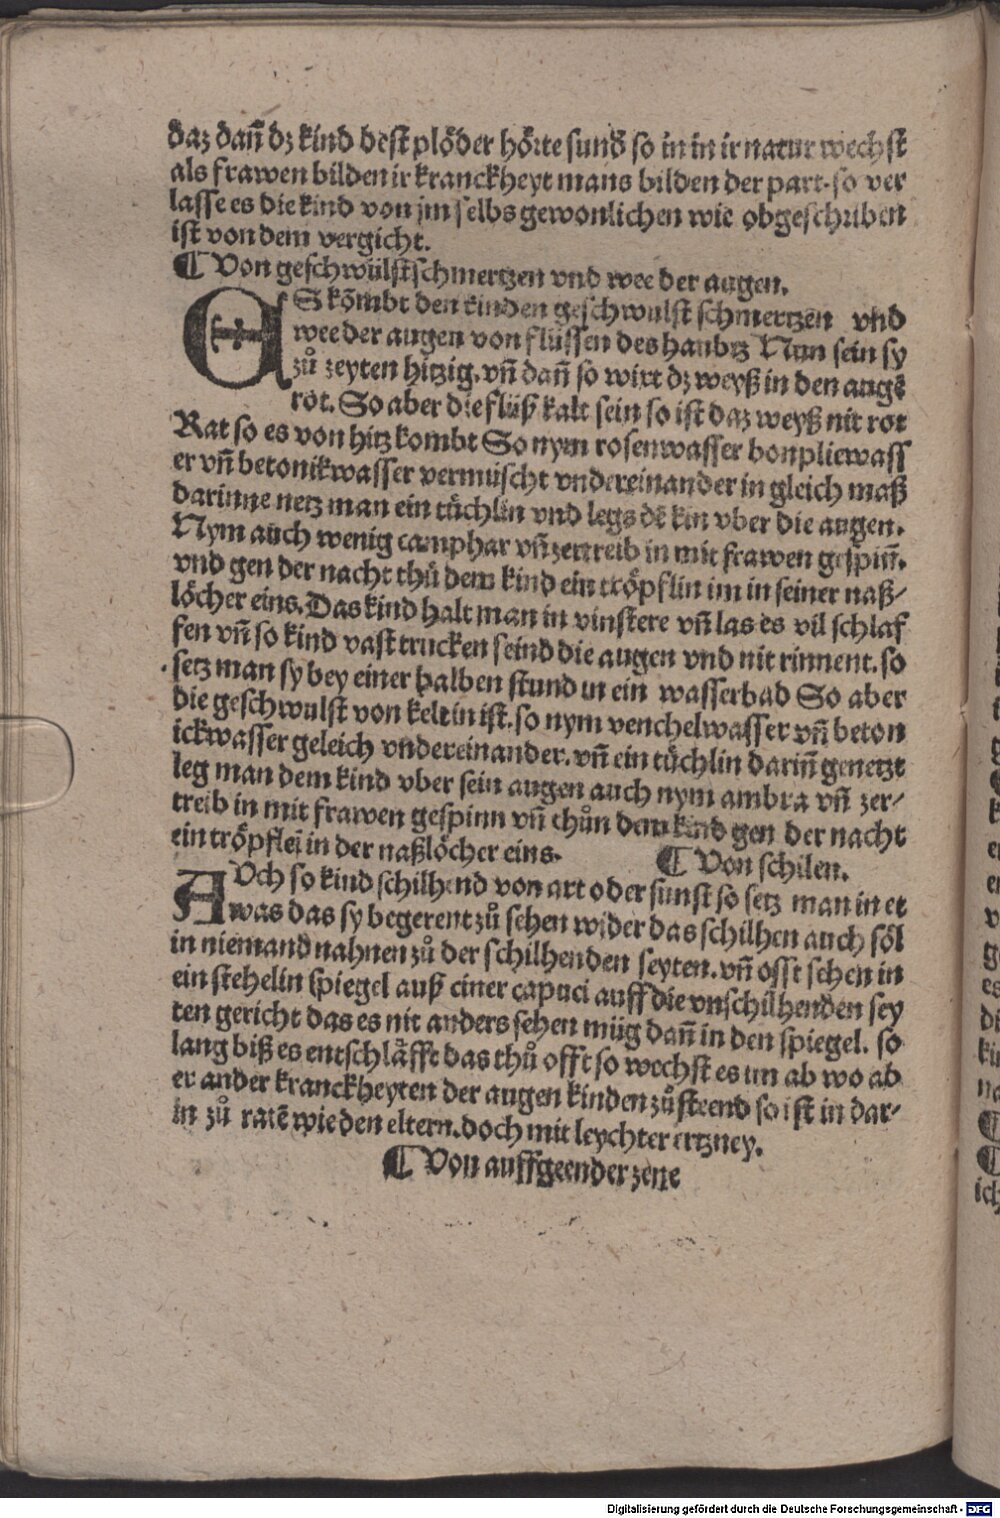 daz dañ dz kind dest plöder hörte sund so in in ir natur wechst
als frawen bilden ir kranckheyt mans bilden der part. so ver
lasse es die kind von jm selbs gewonlichen wie obgeschriben
ist von dem vergicht.
¶ Von geschwülst schmertzen vnd wee der augen.
ES kömbt den kinden geschwulst schmertzen vnd
wee der augen von flüssen des haubtz Nun sein sy
zů zeyten hitzig. vñ dañ so wirt dz weyß in den augē
rot. So aber die flüß kalt sein so ist daz weyß nit rot
Rat so es von hitz kombt So nym rosenwasser bonpliewass
er vñ betonikwasser vermischt vndereinander in gleich maß
darinne netz man ein tüchlin vnd legs dē kin vber die augen.
Nym auch wenig camphar vñ zertreib in mit frawen gespiñ.
vnd gen der nacht thů dem kind ein tröpflin im in seiner naß/
löcher eins. Das kind halt man in vinstere vñ las es vil schlaf
fen vñ so kind vast trucken seind die augen vnd nit rinnent. so
setz man sy bey einer halben stund in ein wasserbad So aber
die geschwulst von keltin ist. so nym venchelwasser vñ beton
ickwasser geleich vndereinander. vñ ein tüchlin dariñ genetzt
leg man dem kind vber sein augen auch nym ambra vñ zer/
treib in mit frawen gespinn vñ thůn dem kind gen der nacht
ein tröpfleī in der naßlöcher eins. ¶ Von schilen.
AVch so kind schilhend von art oder sunst so setz man in et
was das sy begerent zů sehen wider das schilhen auch söl
in niemand nahnen zů der schilhenden seyten. vñ offt sehen in
ein stehelin spiegel auß einer capuci auff die vnschilhenden sey
ten gericht das es nit anders sehen müg dañ in den spiegel. so
lang biß es entschläfft das thů offt so wechst es im ab wo ab
er ander kranckheyten der augen kinden zůsteend so ist in dar/
in zů ratē wie den eltern. doch mit leychter ertzney.
¶ Von auffgeender zene
Digitalisierung gefördert durch die Deutsche Forschungsgemeinschaft - DFG